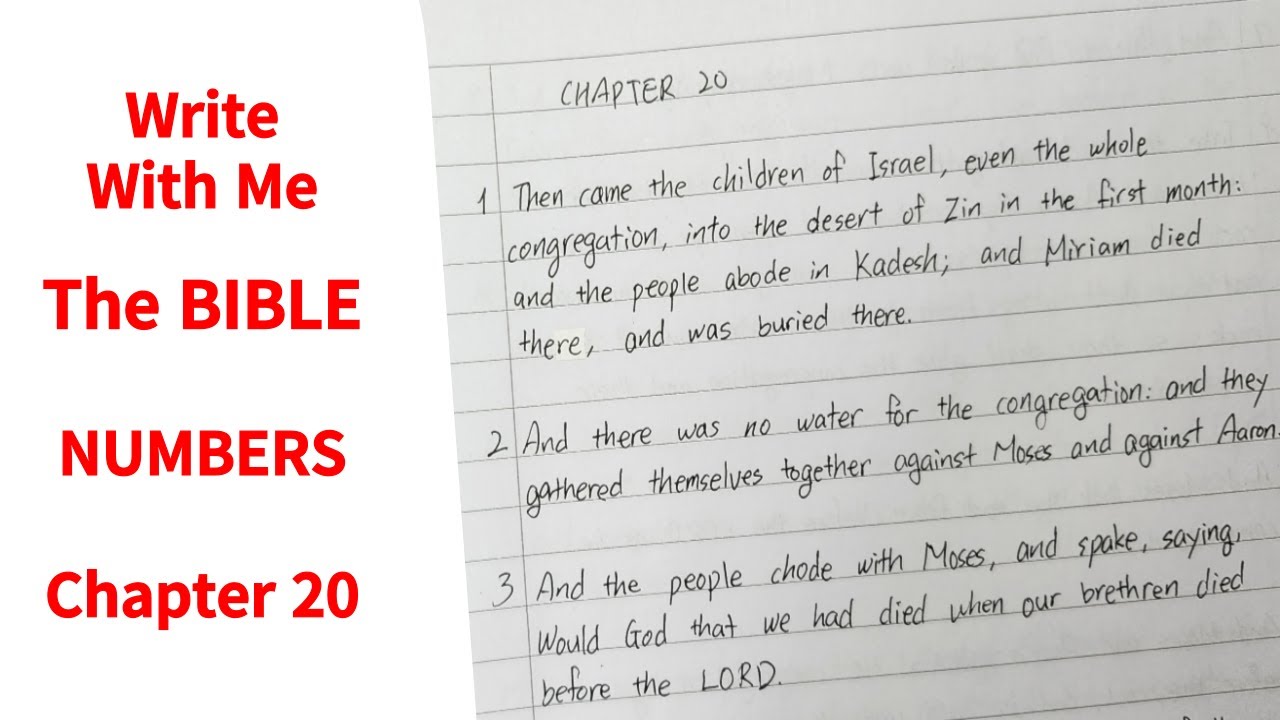 Write
With Me
The BIBLE
NUMBERS
Chapter 20
CHAPTER 20
1 Then came the children of Israel, even the whole
congregation, into the desert of Zin in the first month:
and the people abode in Kadesh; and Miriam died
there, and was buried there.
2 And there was no water for the congregation: and they
gathered themselves together against Moses and against Aaron.
3 And the people chode with Moses, and spake, saying,
Would God that we had died when our brethren died
before the LORD.